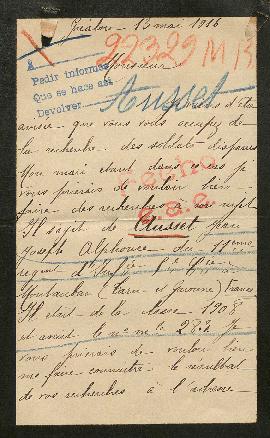 13 mai 1916
22329 M
Monsieur
A
Pedir informes
Que se hace así
Devolver
Ausset
avisée que vous vous occupez de
la recherche des soldats disparus
Mon mari étant dans ce cas je
vous prierais de vouloir bien
faire des recherches à son sujet
Il s'agit de Ausset Jean
Joseph Alphonse du 11eme
regient d'Inf
Montauban (Tarn et Garonne) France
Il était de la classe 1908
et avait le no me 282 Je
vous prierais de vouloir bien
me faire connaître le résultat
de vos recherches à l'adresse